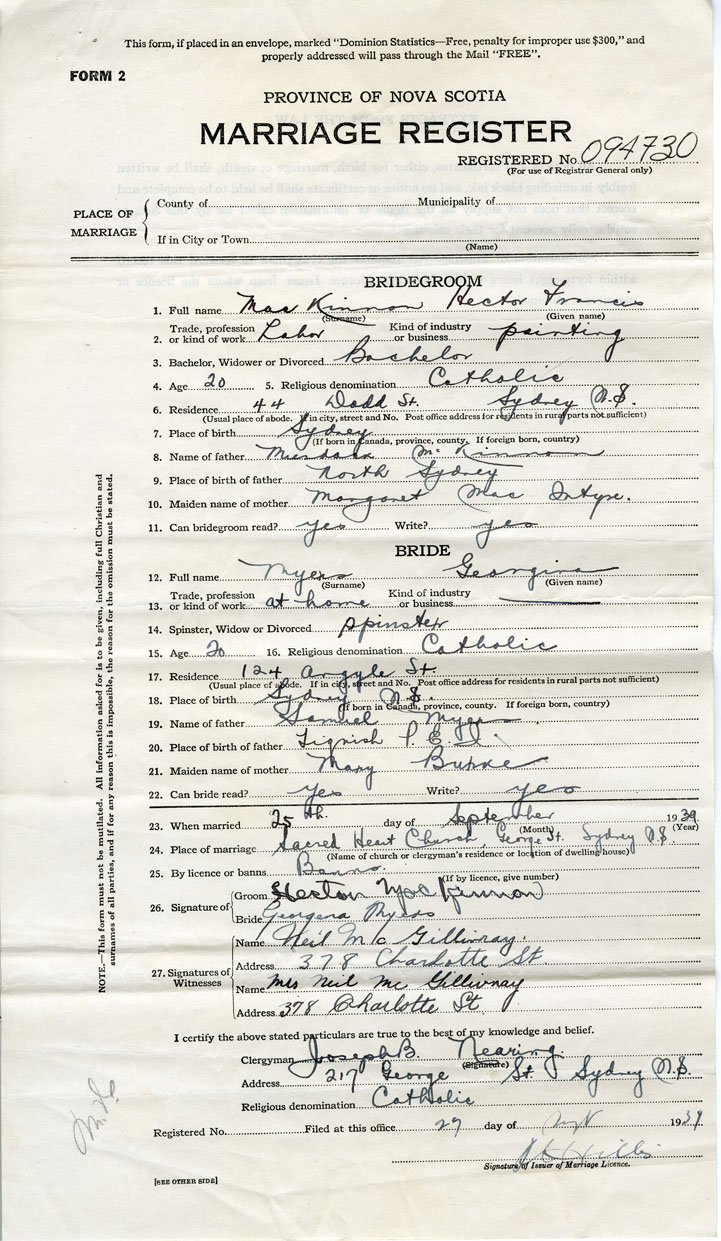 This form, if placed in an envelope, marked "Dominion Statistics—Free, penalty for improper use $300," and
properly addressed will pass through the Mail "FREE".
FORM 2
PROVINCE OF NOVA SCOTIA
MARRIAGE REGISTER
REGISTERED No. 094730
(For use of Registrar General only)
PLACE OF MARRIAGE
County of Municipality of
If in City or Town
(Name)
BRIDEGROOM
1. Full name Mac Kinnon Hector Francis
(Surname) (Given name)
2. Trade, profession or kind of work Labor Kind of industry or business painting
3. Bachelor, Widower or Divorced Bachelor
4. Age 20 5. Religious denomination Catholic
6. Residence 44 Dodd St. Sydney N.S.
(Usual place of abode. If in city, street and No. Post office address for residents in rural parts not sufficient)
7. Place of birth Sydney
(If born in Canada, province, county. If foreign born, country)
8. Name of father Mc Kinnon
9. Place of birth of father North Sydney
10. Maiden name of mother Margaret Mac Intyre.
11. Can bridegroom read? yes Write? yes
BRIDE
12. Full name Myers Georgina
(Surname) (Given name)
13. Trade, profession or kind of work at home Kind of industry or business
14. Spinster, Widow or Divorced spinster
15. Age 20 16. Religious denomination Catholic
17. Residence 124 Argyle St.
(Usual place of abode. If in city, street and No. Post office address for residents in rural parts not sufficient)
18. Place of birth Sydney N.S.
(If born in Canada, province, county. If foreign born, country)
19. Name of father Samuel Myers
20. Place of birth of father Tignish P.E.I.
21. Maiden name of mother Mary Burke
22. Can bride read? yes Write? yes
23. When married 25th. day of September 1939
(Month) (Year)
24. Place of marriage Sacred Heart Church, George St. Sydney N.S.
(Name of church or clergyman's residence or location of dwelling house)
25. By licence or banns Banns
(If by licence, give number)
26. Signature of Groom Hector MacKinnon
Bride Georgena Myers
27. Signatures of Witnesses
Name Neil Mc Gillivray.
Address 378 Charlotte St.
Name Mrs Neil Mc Gillivray
Address 378 Charlotte St
I certify the above stated particulars are true to the best of my knowledge and belief.
Clergyman Joseph B. Nearing.
(Signature)
Address 217 George St. Sydney N.S.
Religious denomination Catholic
Registered No. Filed at this office 29 day of 1939
Signature of Issuer of Marriage Licence.
[SEE OTHER SIDE]
NOTE.—This form must not be mutilated. All information asked for is to be given, including full Christian and
surnames of all parties, and if for any reason this is impossible, the reason for the omission must be stated.